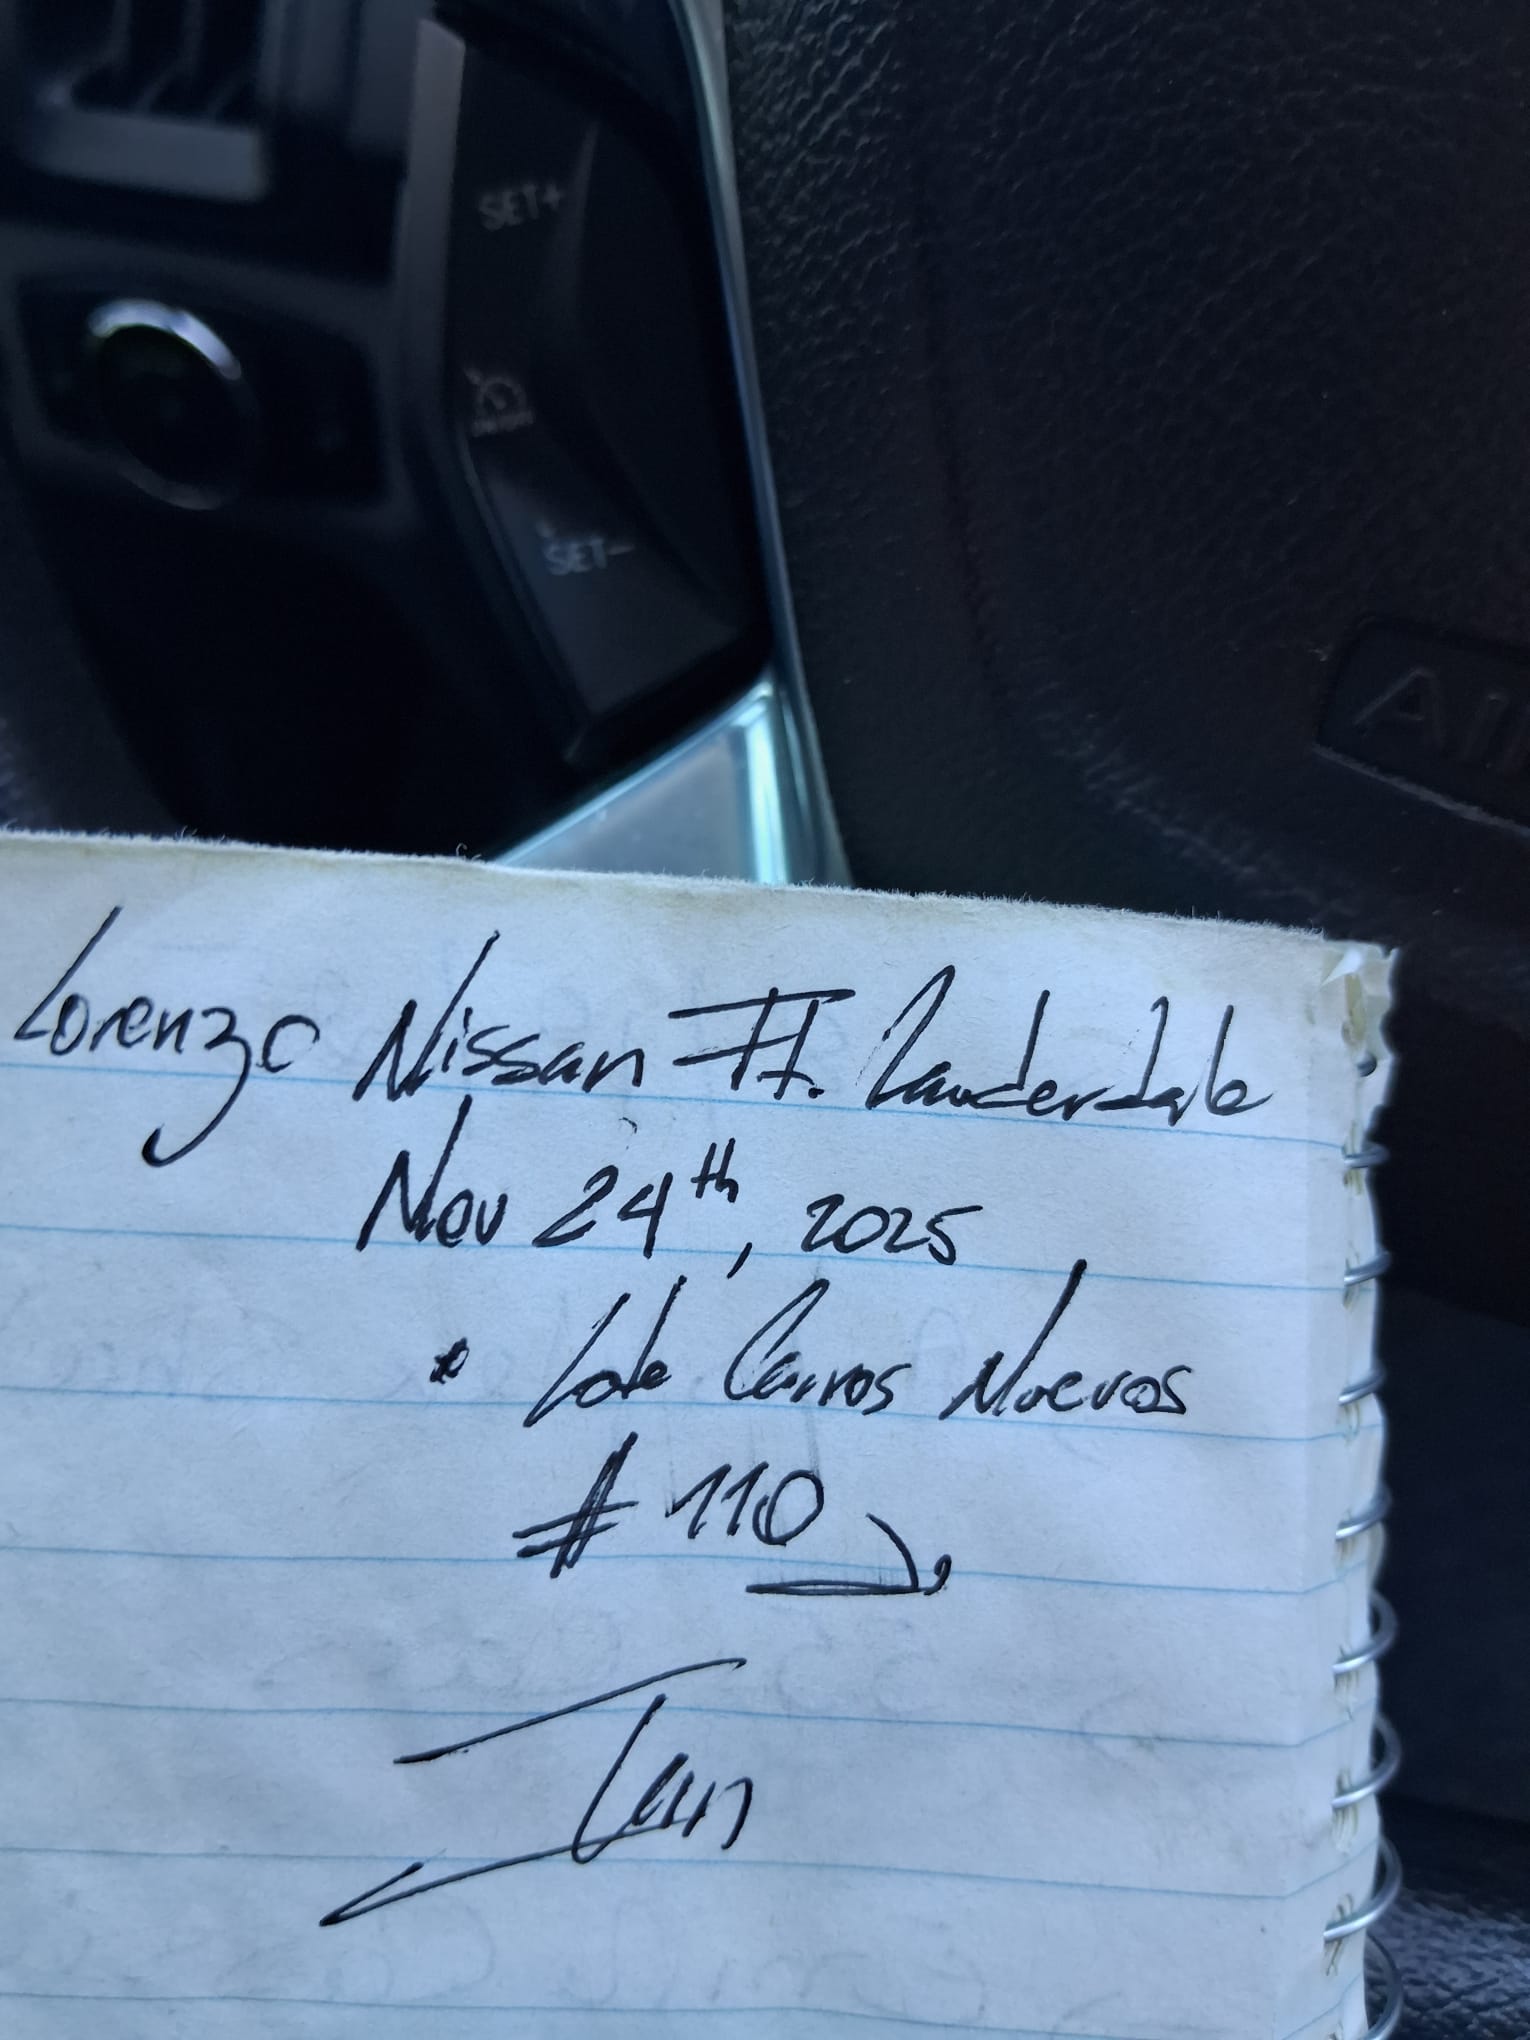 SET+
SET-
AI
Lorenzo Nissan Ft. Lauderdale
Nov 24th, 2025
• Lote Carros Nuevos
# 110